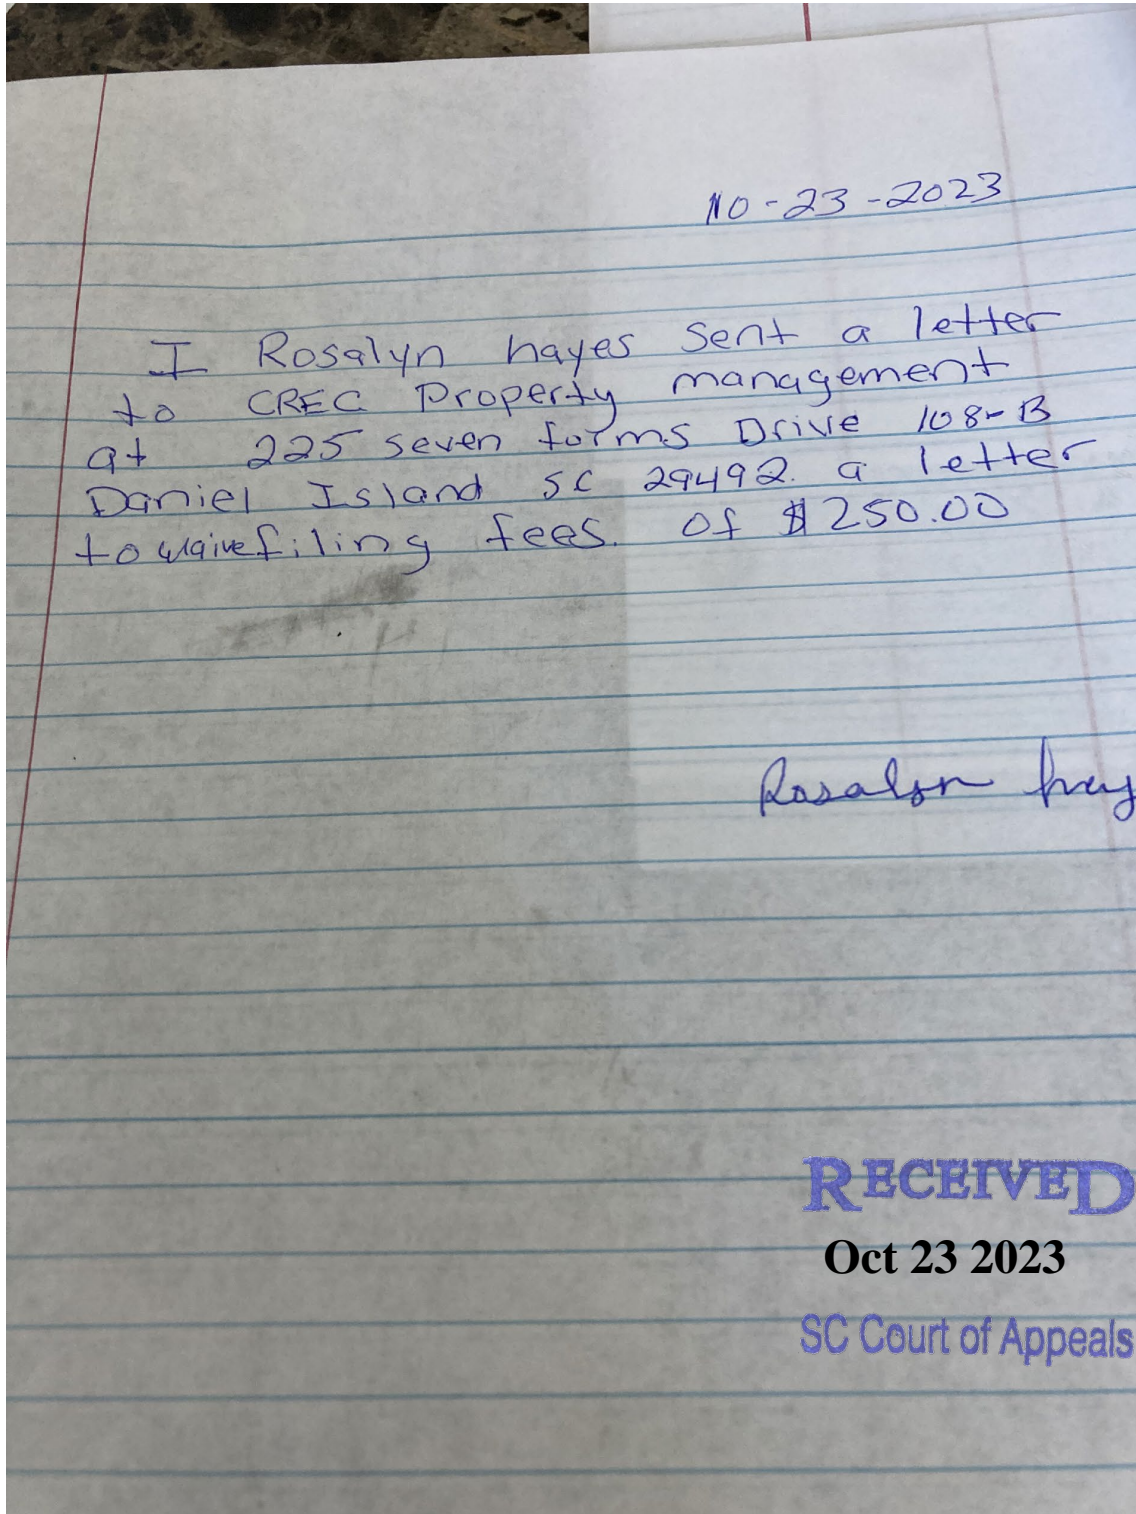 10-23-2023
I Rosalyn hayes sent a letter
to CREC Property management
at 225 seven forms Drive 108-B
Daniel Island SC 29492. a letter
to waive filing fees. of $250.00
Rosalyn
RECEIVED
Oct 23 2023
SC Court of Appeals